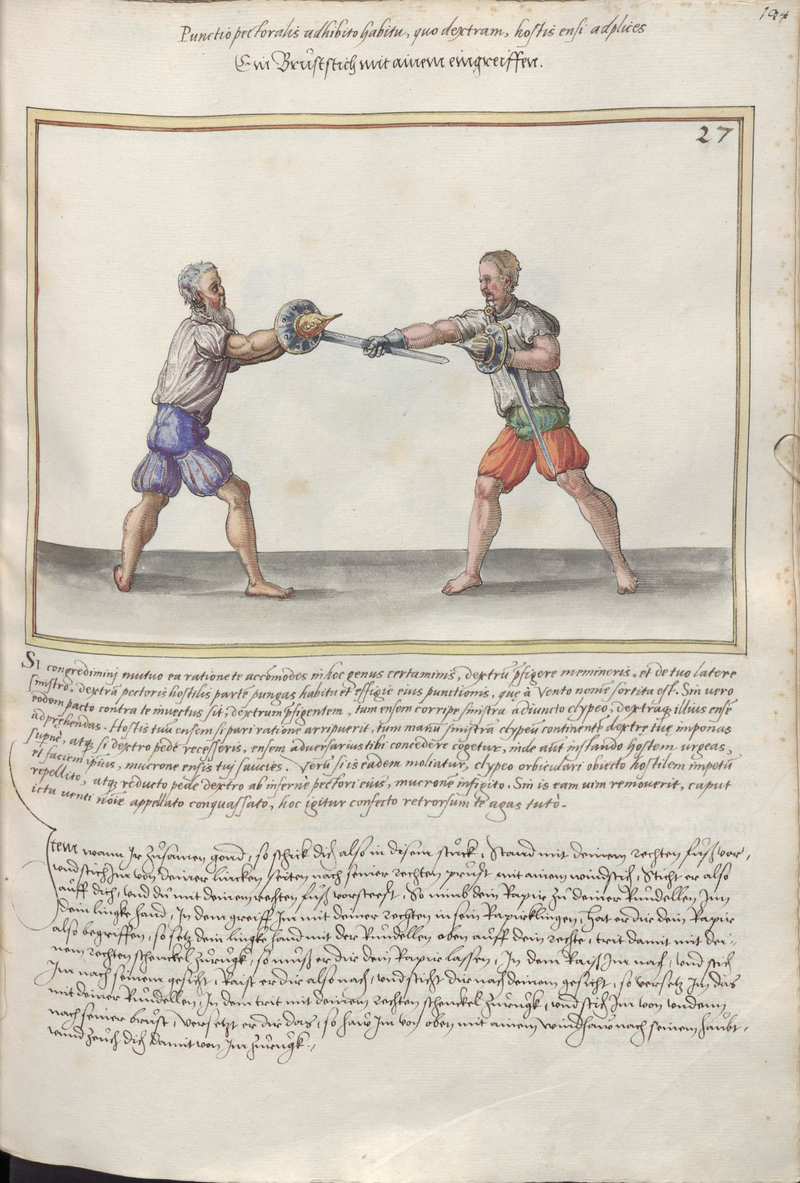 194
Punctio pectoralis adhibito habitu, quo dextram, hostis ensi adplices
Ein Brŭststich mit ainem eingreiffen.
27
Si congrediminj mutuo ea ratione te accõmodes in hoc genus certaminis, dextrũ p̃figere memineris, et de tuo latere
sinistro, dextrã pectoris hostilis partẽ pungas habitu et effigie eius punctionis, quę à Vento nomẽ sortita est. Sin vero
eodem pacto contra te inuectus sit, dextrum p̃figentem, tum ensem corripe sinistra adiuncto clypeo, dextraq, illius ensẽ
adprehendas. Hostis tuũ ensem si pari ratione arripuerit, tum manũ sinistrã clypeũ continentẽ dextrę tuę imponas
supnè, atq, si dextro pedè recesseris, ensem aduersarius tibi concedere cogetur, inde aũt instando hostem urgeas,
et faciem ipius, mucrone ensis tuj saucies. Verũ si is eadem moliatur, clypeo orbiculari obiecto hostilem impetũ
repellito, atq, reducto pede dextro ab infernè pectori eius, mucronẽ infigito. Sin is eam uim remouerit, caput
ictu venti nõie appellato conquassato, hoc igitur confecto retrorsum te agas tutò.
Item wann Ir zŭsamen gond, so schick dich also in disem stuck, Stand mit deinem rechten fŭß vor,
vnd stich Im von deiner lincken seiten nach seiner rechten prust mit ainem windstich, Sticht er also
auff dich, vnd du mit deinem rechten fŭß vorsteest, So nimb dein Rapir zŭ deiner Rundellen Inn
dein lingke hand, In dem greiff Im mit deiner rechten in sein Rapirklingen, Hat er dir dein Rapir
also begriffen, so setz dein lingke hand mit der Rundellen oben auff dein rechte, trit damit mit dei-
nem rechten schenckel zŭrŭgk, so mŭß er dir dein Rapir lassen, In dem Raiß Im nach, vnd stich
Im nach seinem gesicht, Raist er dir also nach, vnd sticht dir nach deinem gesicht, so versetz Im das
mit deiner Rundellen, In dem trit mit deinem rechten schenckel zŭrŭgk, vnd stich Im von vndenn
nach seiner brust, Versetzt er dir das, so haw Im von oben mit ainem windhaw nach seinem haŭbt,
vnnd zeuch dich damit von Im zŭrŭgk.